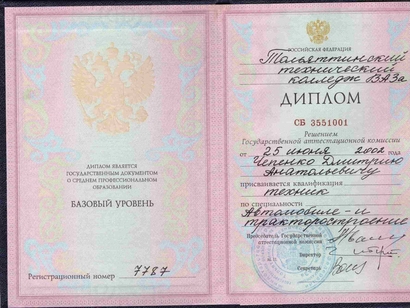 ДИПЛОМ ЯВЛЯЕТСЯ
ГОСУДАРСТВЕННЫМ ДОКУМЕНТОМ
О СРЕДНЕМ ПРОФЕССИОНАЛЬНОМ
ОБРАЗОВАНИИ
БАЗОВЫЙ УРОВЕНЬ
Регистрационный номер 7787
РОССИЙСКАЯ ФЕДЕРАЦИЯ
Тольяттинский
технический
колледж ВАЗа
ДИПЛОМ
СБ 3551001
Решением
Государственной аттестационной комиссии
от 25 июня 2002 года
Чепенко Дмитрию
Анатольевичу
присваивается квалификация
техник
по специальности
Автомобиле- и
тракторостроение
Председатель Государственной
аттестационной комиссии
Директор
Секретарь